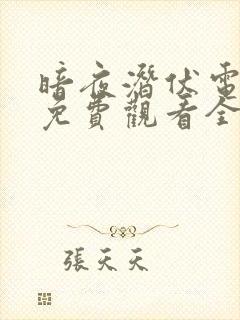 暗夜潛伏電
免費觀看全
張天天